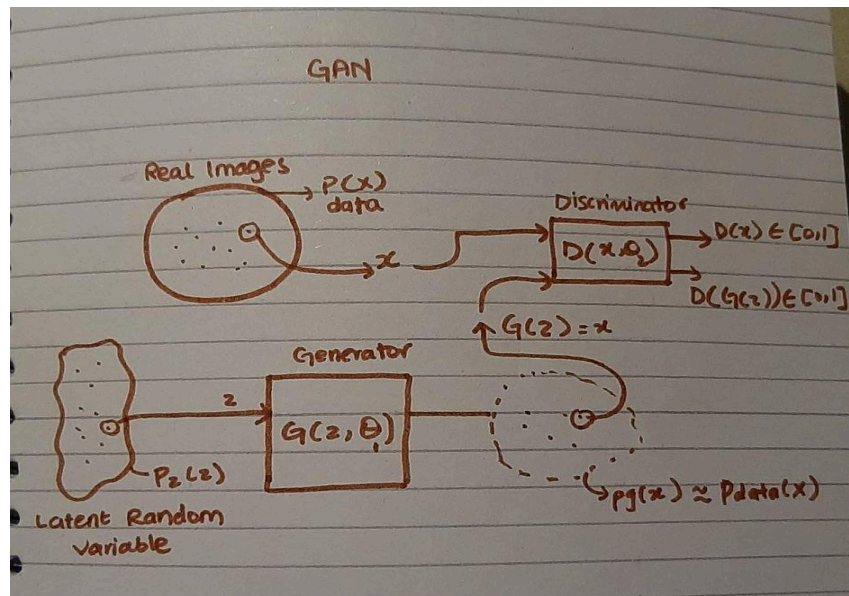 GAN
Real Images
P(x)
data
x
Discriminator
D(x,θ₂)
D(x) ∈ [0,1]
D(G(z)) ∈ [0,1]
G(z) = x
Generator
z
G(z, θ₁)
P₂(z)
Latent Random
Variable
pg(x) ≈ Pdata(x)